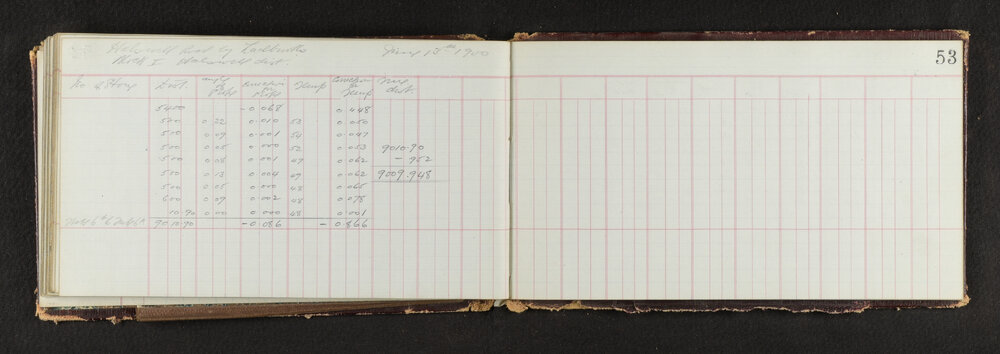 53
Halswell Road by
Jany 13th 1900
Block I Halswell dist.
No of Stong Dist. angle of Slope Correction for Slope Temp Correction for Temp True dist.
5400 - 0.068 0.448
500 0.22 0.010 52 0.050
500 0.09 0.001 54 0.047
500 0.05 0.000 52 0.053 9010.90
500 0.08 0.001 49 0.062 - 952
500 0.13 0.004 49 0.062 9009.948
500 0.05 0.000 48 0.065
600 0.09 0.002 48 0.078
10.90 0.00 0.000 48 0.001
9010.90 - 0.086 - 0.866